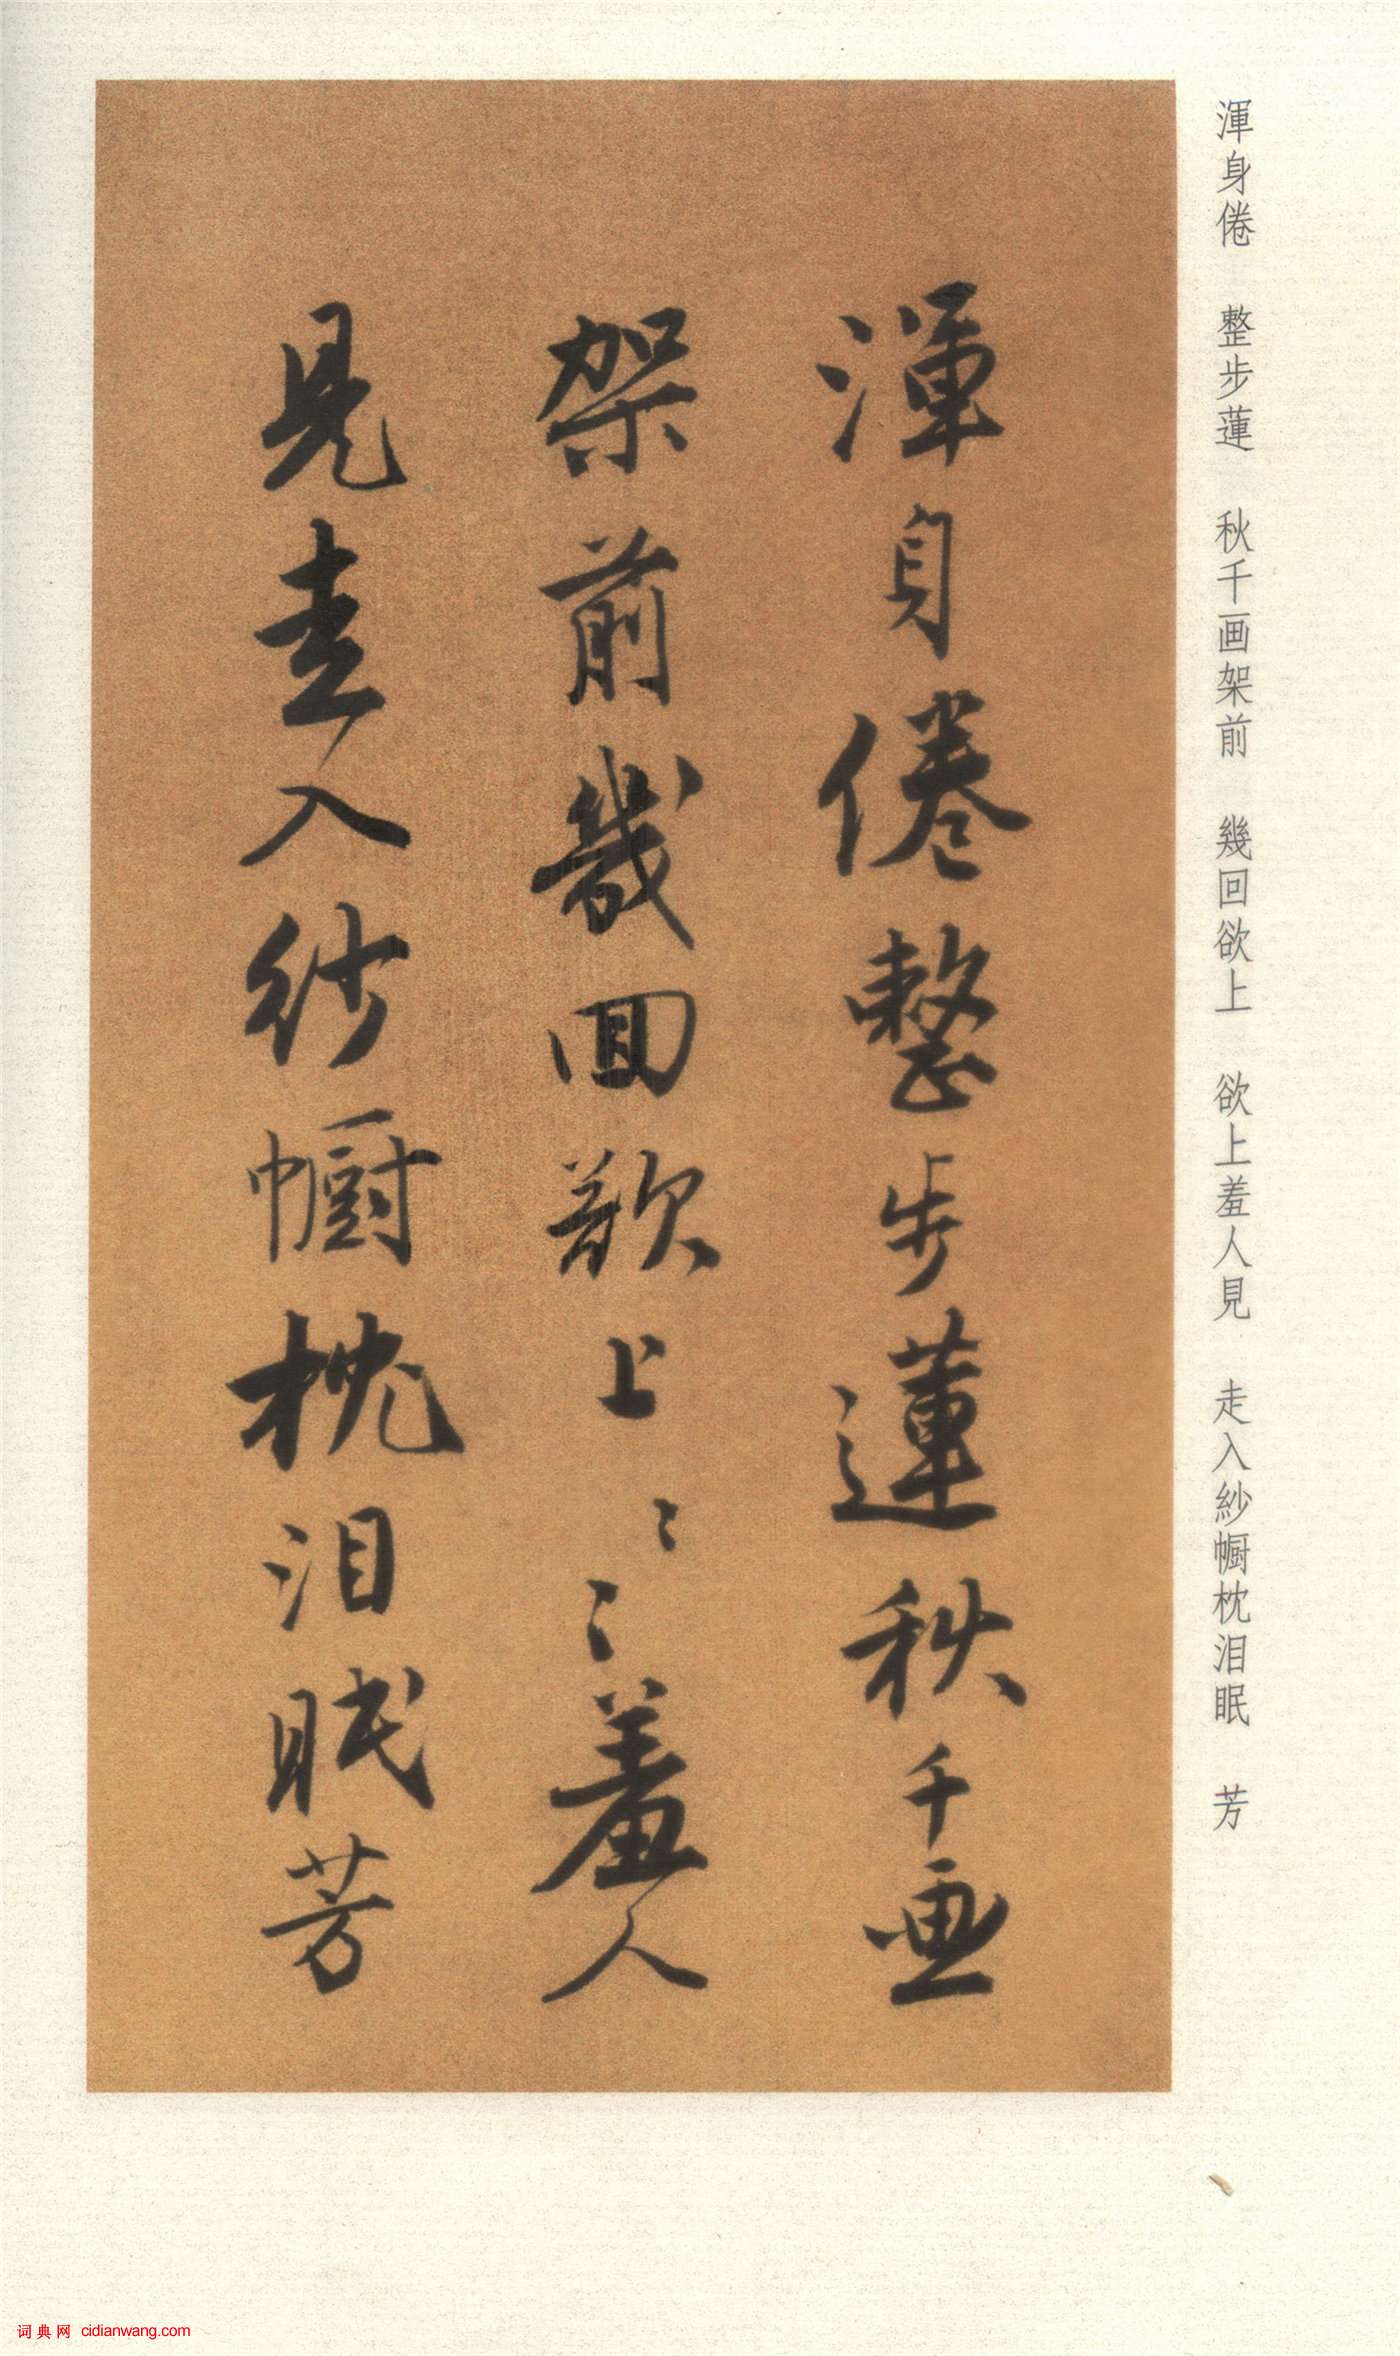 渾身倦　整步蓮　秋千画架前　幾回欲上　欲上羞人見　走入紗㡡枕泪眠　芳
渾身倦整步蓮秋千画
架前幾回欲上〻〻羞人
見走入紗㡡枕泪眠芳
词典网 cidianwang.com